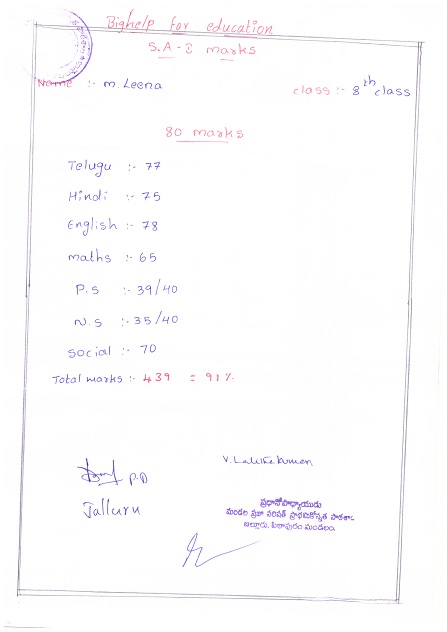 Bighelp for education
S.A-3 marks
Name :- M. Leena
class :- 8th class
80 marks
Telugu :- 77
Hindi :- 75
English :- 78
maths :- 65
P.S :- 39/40
N.S :- 35/40
social :- 70
Total marks :- 439 = 91%
P.D
Jalluru
ప్రధానోపాధ్యాయుడు
మండల ప్రజా పరిషత్ ప్రాథమికోన్నత పాఠశాల
జల్లూరు, పిఠాపురం మండలం.